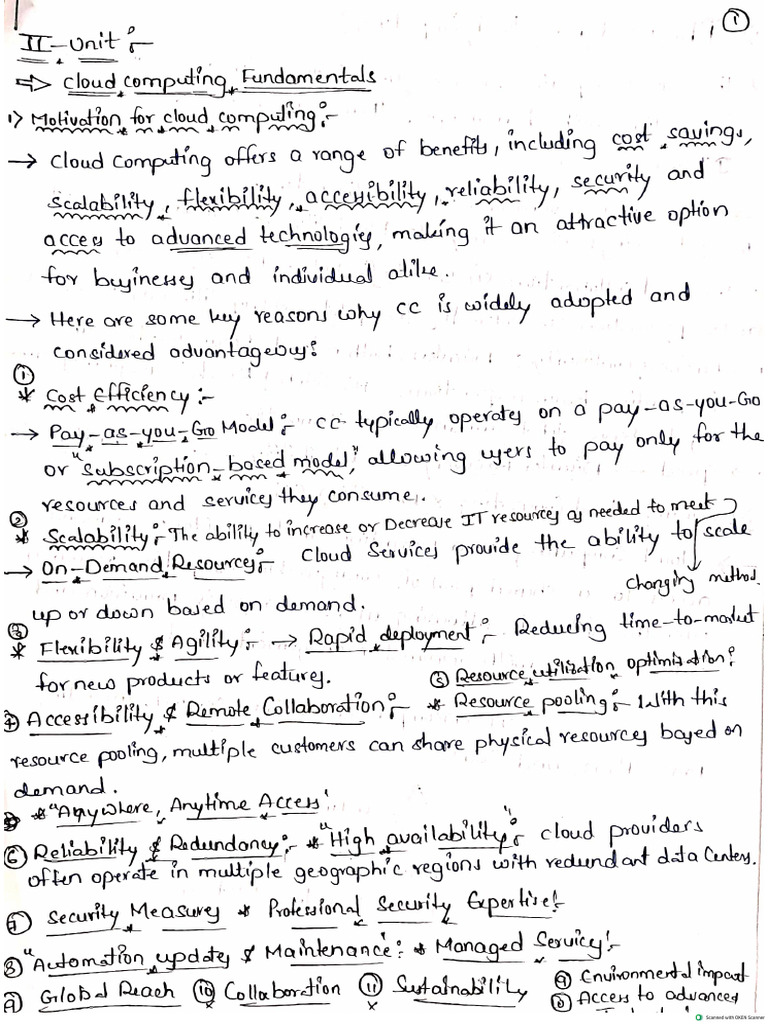 ①
II-unit :-
⇒ Cloud computing Fundamentals
1) Motivation for cloud computing :-
→ Cloud Computing offers a range of benefits, including cost savings,
scalability, flexibility, accessibility, reliability, security and
access to advanced technologies, making it an attractive option
for businesses and individual alike.
→ Here are some key reasons why CC is widely adopted and
considered advantageous:
①
* Cost Efficiency :-
→ Pay-as-you-Go Model :- CC typically operates on a pay-as-you-Go
or "subscription-based model," allowing users to pay only for the
resources and services they consume.
②
* Scalability :- The ability to increase or Decrease IT resources as needed to meet
→ On-Demand Resources :- Cloud Services provide the ability to scale
changing method.
up or down based on demand.
③
* Flexibility & Agility :- → Rapid deployment :- Reducing time-to-market
for new products or features.
⑤ Resource utilization optimization :
④ Accessibility & Remote Collaboration :- * Resource pooling :- With this
resource pooling, multiple customers can share physical resources based on
demand.
* "Anywhere, Anytime Access"
⑥ Reliability & Redundancy :- * "High availability" :- cloud providers
often operate in multiple geographic regions with redundant data Centers.
⑦ Security Measures * Professional Security Expertise :-
⑧ "Automation updates & Maintenance" : * Managed Services :-
⑨ Global Reach ⑩ Collaboration ⑪ Sustainability
x x
⑨ Environmental impact
⑩ Access to advanced
Scanned with OKEN Scanner